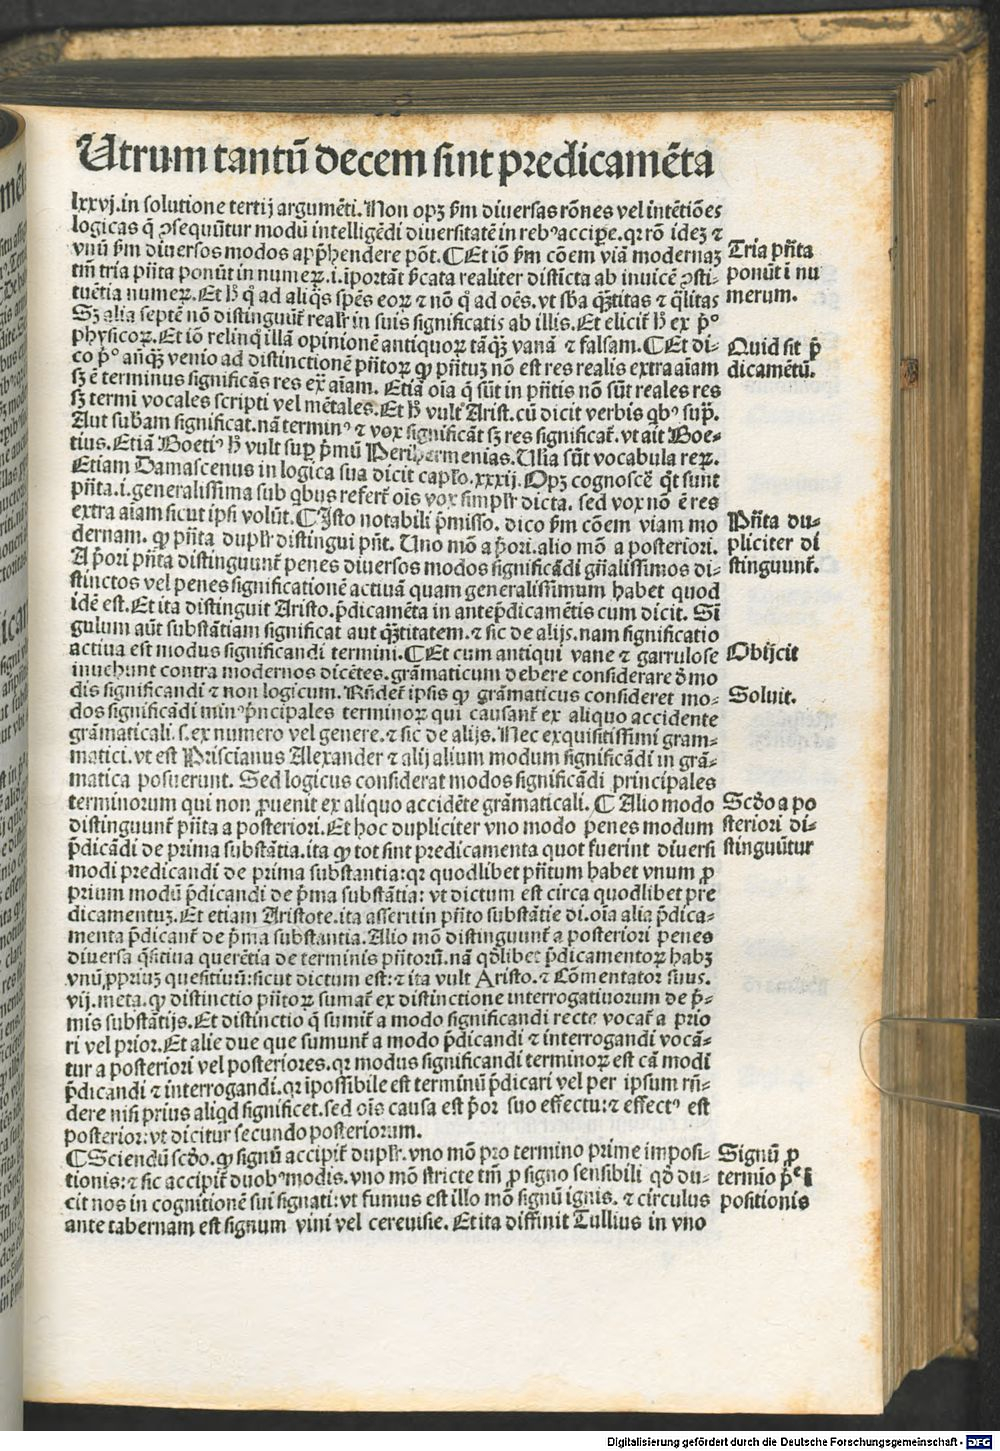 Utrum tantū decem sint predicamēta
lxxvj. in solutione tertij argumēti. Non opꝫ ẜm diuersas rōnes vel intētiōes
logicas q̄ ꝯsequūtur modū intelligēdi diuersitatē in rebꝰ accipere. qꝛ rō ideꝫ ⁊
vnū ẜm diuersos modos app̄hendere pōt. ⸿Et iō ẜm cōem viā modernaꝫ
tm̄ tria pn̄ta ponūt in numeꝝ. i. iportāt p̄cata realiter distīcta ab inuicē ꝯsti-
tuētia numeꝝ. Et ħ q̄ ad aliq̄s spēs eoꝝ ⁊ nō q̄ ad oēs. vt sb̄a q̄ꝫtitas ⁊ q̄litas
Sꝫ alia septē nō distinguūt̄ realr̄ in suis significatis ab illis. Et elicit̄ ħ ex p̄ᵒ
physicoꝝ. Et iō relinq̄ illā opinionē antiquoꝝ tāq̄ꝫ vanā ⁊ falsam. ⸿Et di-
co p̄ᵒ anq̄ꝫ venio ad distinctionē pn̄toꝝ ꝙ pn̄tuꝫ nō est res realis extra aīam
sꝫ ē terminus significās res ex̄ aīam. Etiā oīa q̄ sūt in pn̄tis nō sūt reales res
sꝫ termī vocales scripti vel mētales. Et ħ vult Arist. cū dicit verbis qb̄ꝰ sup̄.
Aut sub̄am significat. nā terminꝰ ⁊ vox significāt sꝫ res significat̄. vt ait Boe-
tius. Etiā Boetiꝰ ħ vult sup̄ p̄mū Perihermenias. Alia sūt vocabula reꝝ.
Etiam Damascenus in logica sua dicit caplo. xxxij. Opꝫ cognoscē q̄t sunt
pn̄ta. i. generalissima sub qbus refert̄ oīs vox simplr̄ dicta. sed vox nō ē res
extra aīam sicut ipsi volūt. ⸿Isto notabili p̄misso. dico ẜm cōem viam mo
dernam. ꝙ pn̄ta duplr̄ distingui pn̄t. Uno mō a p̄ori. alio mō a posteriori.
A p̄ori pn̄ta distinguunt̄ penes diuersos modos significādi gn̄alissimos di-
stinctos vel penes significationē actiuā quam generalissimum habet quod
idē est. Et ita distinguit Aristo. p̄dicamēta in antep̄dicamētis cum dicit. Sī
gulum aūt substātiam significat aut q̄ꝫtitatem. ⁊ sic de alijs. nam significatio
actiua est modus significandi termini. ⸿Et cum antiqui vane ⁊ garrulose
inuehunt contra modernos dicētes. grāmaticum debere considerare d̄ mo
dis significandi ⁊ non logicum. Rn̄det̄ ipsis ꝙ grāmaticus consideret mo-
dos significādi minꝰ p̄ncipales terminoꝝ qui causant̄ ex aliquo accidente
grāmaticali. s. ex numero vel genere. ⁊ sic de alijs. Nec exquisitissimi gram-
matici. vt est Priscianus Alexander ⁊ alij alium modum significādi in grā-
matica posuerunt. Sed logicus considerat modos significādi principales
terminorum qui non ꝓuenit ex aliquo accidēte grāmaticali. ⸿Alio modo
distinguunt̄ pn̄ta a posteriori. Et hoc dupliciter vno modo penes modum
p̄dicādi de prima substātia. ita ꝙ tot sint predicamenta quot fuerint diuersi
modi predicandi de prima substantia: qꝛ quodlibet pn̄tum habet vnum ꝓ
prium modū p̄dicandi de p̄ma substātia: vt dictum est circa quodlibet pre
dicamentuꝫ. Et etiam Aristote. ita asserit in pn̄to substātie di. oīa alia p̄dica-
menta p̄dicant̄ de p̄ma substantia. Alio mō distinguunt̄ a posteriori penes
diuersa q̄sitiua querētia de terminis pn̄torū. nā qd̄libet p̄dicamentoꝝ habꝫ
vnū ꝓpriuꝫ quesitiuū: sicut dictum est: ⁊ ita vult Aristo. ⁊ Cōmentator suus.
vij. meta. ꝙ distinctio pn̄toꝝ sumat̄ ex distinctione interrogatiuorum de p̄-
mis substātijs. Et distinctio q̄ sumit̄ a modo significandi recte vocat̄ a prio
ri vel prior. Et alie due que sumunt̄ a modo p̄dicandi ⁊ interrogandi vocā-
tur a posteriori vel posteriores. qꝛ modus significandi terminoꝝ est cā modi
p̄dicandi ⁊ interrogandi. qꝛ ipossibile est terminū p̄dicari vel per ipsum rn̄-
dere nisi prius aliqd significet. sed oīs causa est p̄or suo effectu: ⁊ effectꝰ est
posterior: vt dicitur secundo posteriorum.
⸿Sciendū scd̄o. ꝙ signū accipit̄ duplr̄. vno mō pro termino prime imposi-
tionis: ⁊ sic accipit̄ duobꝰ modis. vno mō stricte tm̄ ꝓ signo sensibili qd̄ du-
cit nos in cognitionē sui signati: vt fumus est illo mō signū ignis. ⁊ circulus
ante tabernam est signum vini vel cereuisie. Et ita diffinit Tullius in vno
Tria pn̄ta
ponūt ī nu
merum.
Quid sit p̄
dicamētū.
Pn̄ta du-
pliciter di
stinguunt̄.
Obijcit
Soluit.
Scd̄o a po
steriori di-
stinguūtur
Signū ꝓ
termīo p̄ᵉ ī
positionis
Digitalisierung gefördert durch die Deutsche Forschungsgemeinschaft - DFG